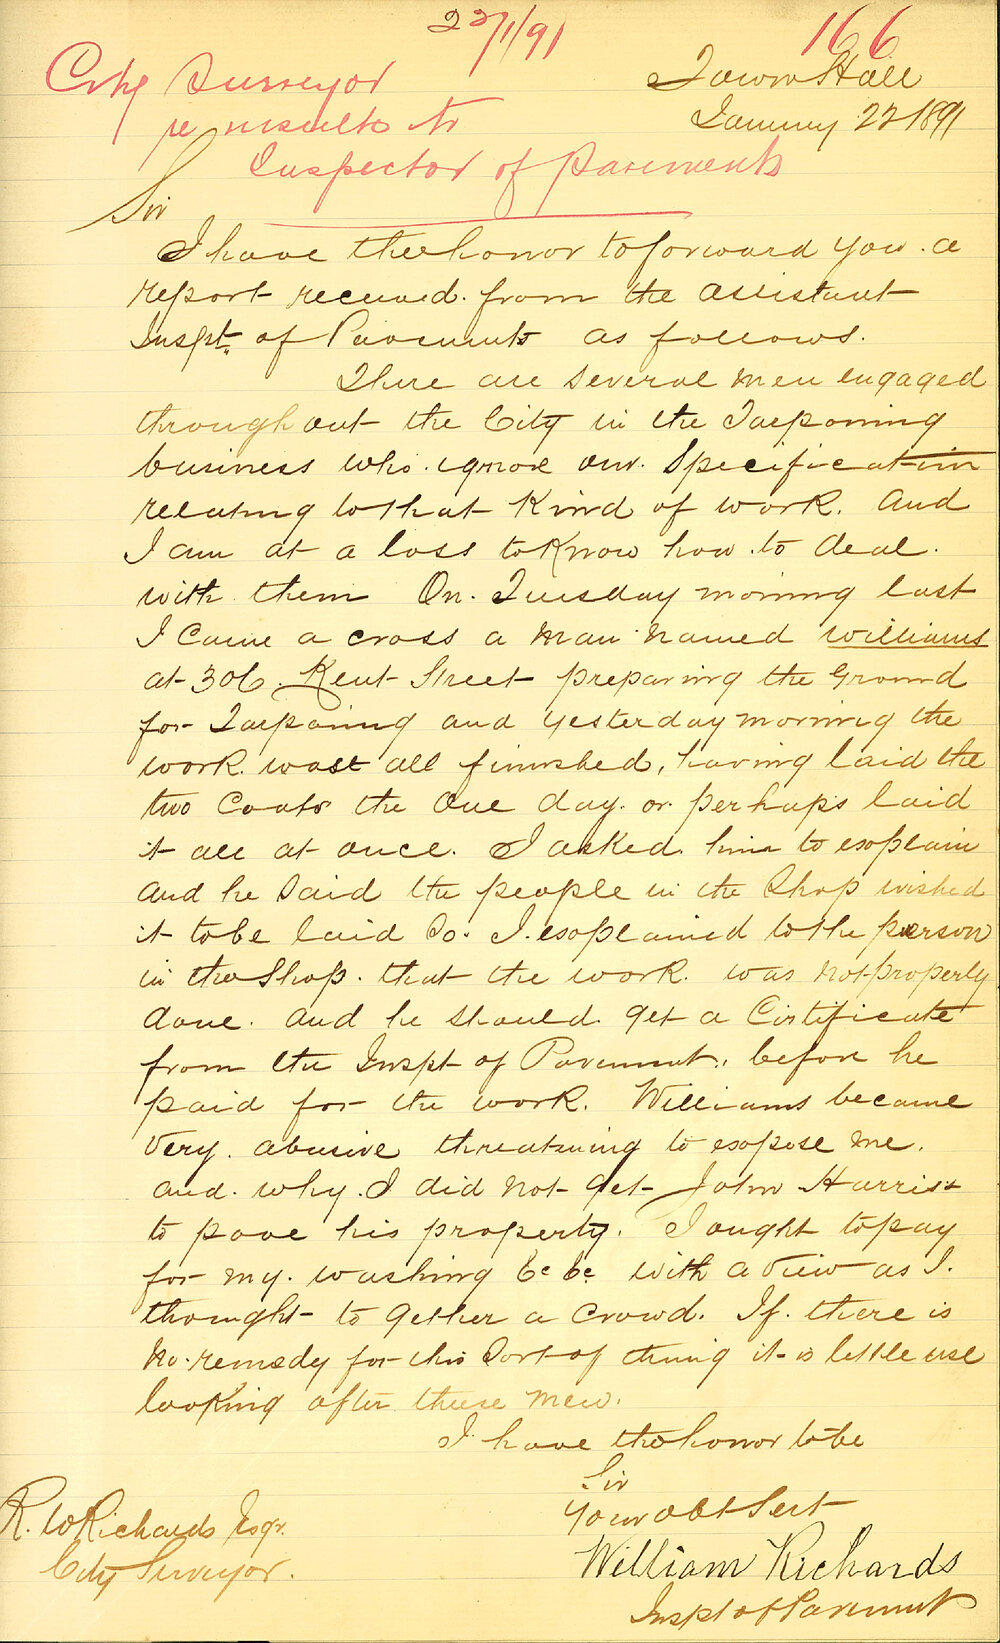 22/1/91
166
City Surveyor
re insults to
Inspector of Pavements
Town Hall
January 22 1891
Sir
I have the honor to forward you a
report received from the Assistant
Inspt. of Pavements as follows.
There are several men engaged
throughout the City in the Tarpaving
business who ignore our Specification
relating to that Kind of work. And
I am at a loss to Know how to deal
with them On Tuesday morning last
I came a cross a man named Williams
at 306 Kent Street preparing the Ground
for Tarpaving and yesterday morning the
work was all finished, having laid the
two Coats the One day or perhaps laid
it all at once. I asked him to explain
and he said the people in the Shop wished
it to be laid So. I explained to the person
in the Shop that the work was not properly
done. and he should get a Certificate
from the Inspt of Pavement, before he
paid for the work. Williams became
very abusive threatning to expose me.
and why I did not get John Harris
to pave his property. I ought to pay
for my washing &c &c with a view as I
thought to gether a crowd. If there is
no remedy for this Sort of thing it is little use
looking after these men.
I have the honor to be
Sir
Your Obt Sert
William Richards
Inspt of Pavement
R. W Richards Esqr.
City Surveyor.